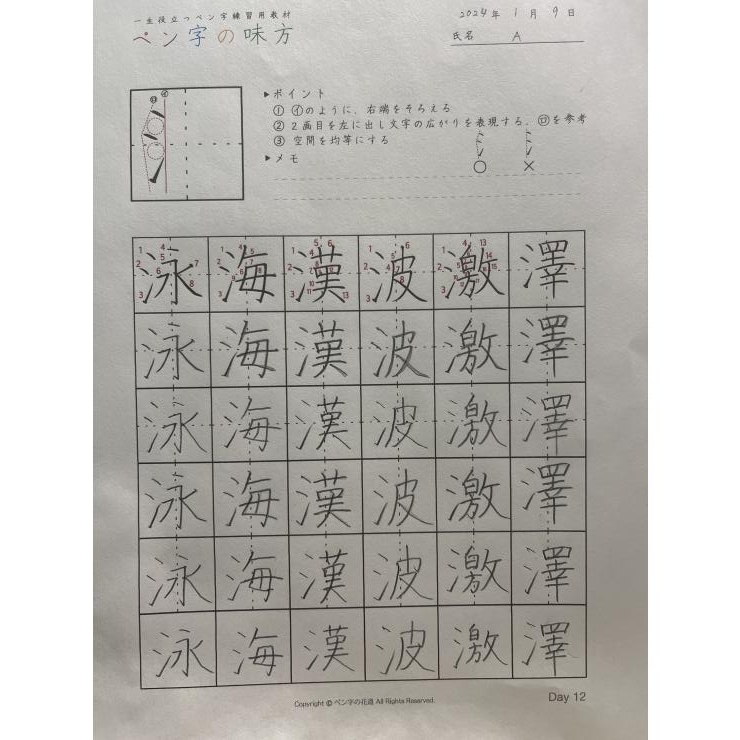 一生役立つペン字練習用教材
ペン字の味方
2024年 1月 9日
氏名 A
ロ イ
▶ポイント
① ㋑のように、右端をそろえる
② 2画目を左に出し文字の広がりを表現する。㋺を参考
③ 空間を均等にする
▶メモ
○ ×
泳 海 漢 波 激 澤
泳 海 漢 波 激 澤
泳 海 漢 波 激 澤
泳 海 漢 波 激 澤
泳 海 漢 波 激 澤
泳 海 漢 波 激 澤
Copyright © ペン字の花道 All Rights Reserved.
Day 12